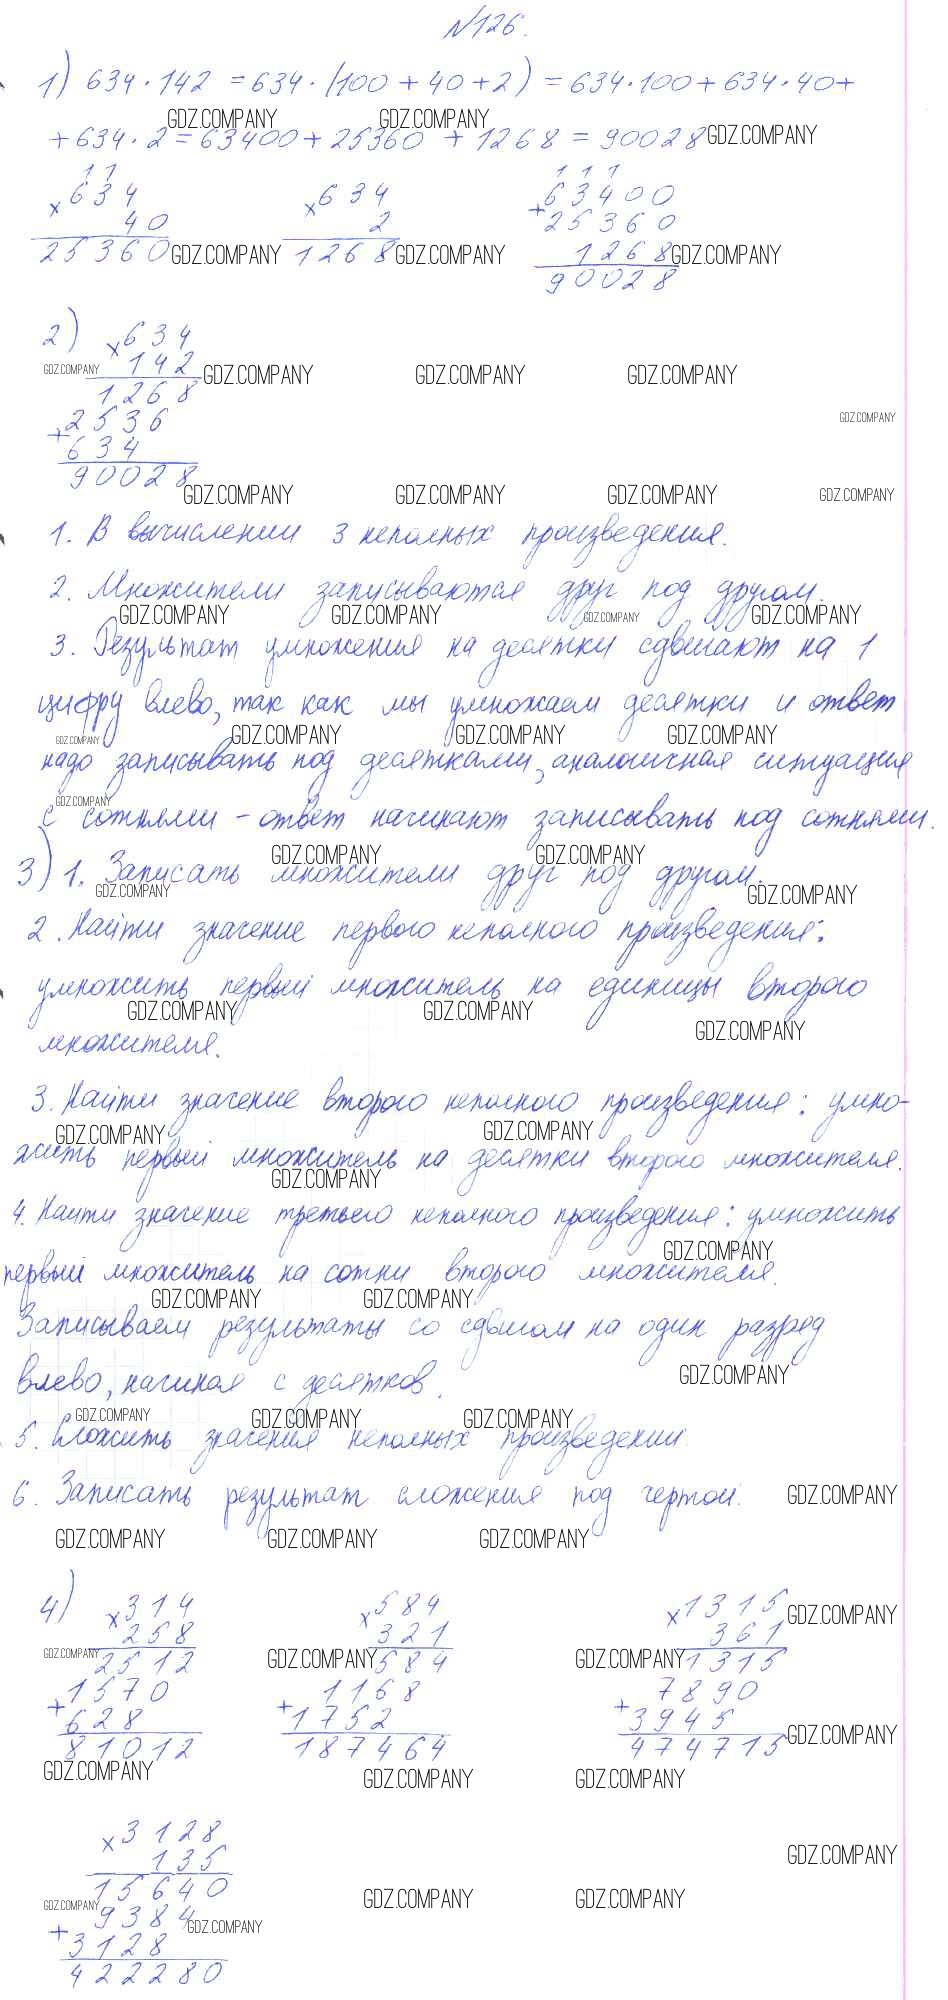 №126.
1) 634·142 = 634·(100 + 40 + 2) = 634·100 + 634·40 +
GDZ.COMPANY GDZ.COMPANY
+ 634·2 = 63400 + 25360 + 1268 = 90028 GDZ.COMPANY
1 1 1 1 1
× 634 × 634 + 63400
40 2 25360
25360 GDZ.COMPANY 1268 GDZ.COMPANY 1268 GDZ.COMPANY
90028
2) × 634
142 GDZ.COMPANY GDZ.COMPANY GDZ.COMPANY GDZ.COMPANY
1268
+ 2536 GDZ.COMPANY
634
90028
GDZ.COMPANY GDZ.COMPANY GDZ.COMPANY GDZ.COMPANY
1. В вычислении 3 неполных произведения.
2. Множители записываются друг под другом.
GDZ.COMPANY GDZ.COMPANY GDZ.COMPANY GDZ.COMPANY
3. Результат умножения на десятки сдвигают на 1
цифру влево, так как мы умножаем десятки и ответ
GDZ.COMPANY GDZ.COMPANY GDZ.COMPANY GDZ.COMPANY
надо записывать под десятками, аналогичная ситуация
GDZ.COMPANY
с сотнями - ответ начинают записывать под сотнями.
GDZ.COMPANY GDZ.COMPANY
3) 1. Записать множители друг под другом.
GDZ.COMPANY GDZ.COMPANY
2. Найти значение первого неполного произведения:
умножить первый множитель на единицы второго
GDZ.COMPANY GDZ.COMPANY GDZ.COMPANY
множителя.
3. Найти значение второго неполного произведения: умно-
GDZ.COMPANY GDZ.COMPANY
жить первый множитель на десятки второго множителя.
GDZ.COMPANY
4. Найти значение третьего неполного произведения: умножить
GDZ.COMPANY
первый множитель на сотни второго множителя.
GDZ.COMPANY GDZ.COMPANY
Записываем результаты со сдвигом на один разряд
GDZ.COMPANY
влево, начиная с десятков.
GDZ.COMPANY GDZ.COMPANY GDZ.COMPANY
5. Сложить значения неполных произведений.
6. Записать результат сложения под чертой. GDZ.COMPANY
GDZ.COMPANY GDZ.COMPANY GDZ.COMPANY
4) × 314 × 584 × 1315 GDZ.COMPANY
258 321 361
GDZ.COMPANY 2512 GDZ.COMPANY 584 GDZ.COMPANY 1315
+ 1570 + 1168 + 7890
628 1752 3945 GDZ.COMPANY
81012 187464 474715
GDZ.COMPANY GDZ.COMPANY GDZ.COMPANY
× 3128
135 GDZ.COMPANY
15640
GDZ.COMPANY GDZ.COMPANY GDZ.COMPANY
+ 9384 GDZ.COMPANY
3128
422280